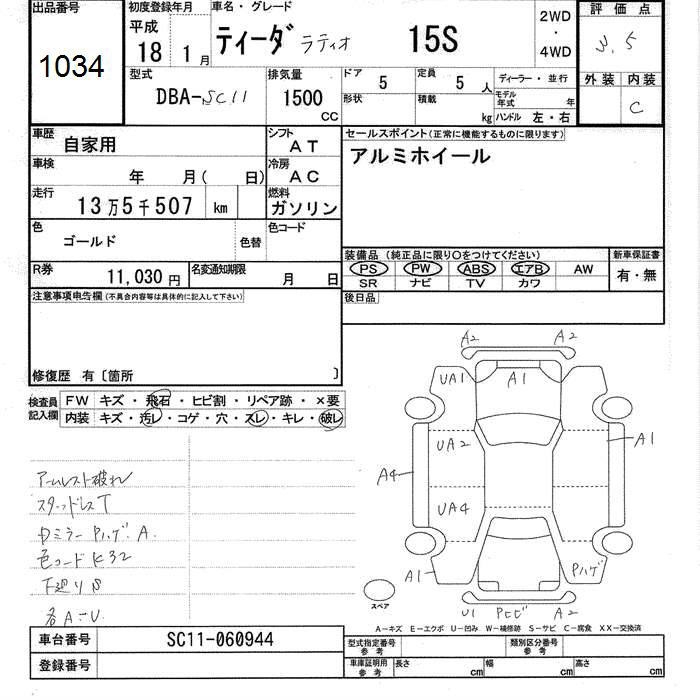 出品番号 初度登録年月 車名・グレード 評価点
1034 平成 18 1月 ティーダ ラティオ 15S 2WD・4WD 3.5
型式 排気量 ドア 5 定員 5人 ディーラー・並行 外装 内装
DBA-SC11 1500 CC 形状 積載 kg モデル年式 年 ハンドル 左・右 C
車歴 自家用 シフト AT セールスポイント(正常に機能するものに限ります)
車検 年 月( 日) 冷房 AC アルミホイール
走行 13万5千507 km 燃料 ガソリン
色 ゴールド 色替 色コード
装備品 (純正品に限り〇をつけてください) 新車保証書
R券 11,030円 名変通知期限 月 日 PS PW ABS エアB AW 有・無
SR ナビ TV カワ
注意事項申告欄(不具合内容等は具体的に記入して下さい) 後日品
修復歴 有〔箇所 〕
検査員記入欄 FW キズ・飛石・ヒビ割・リペア跡・×要
内装 キズ・汚レ・コゲ・穴・スレ・キレ・破レ
A2 A2
UA1 A1
UA2 A1
A4
UA4
A1 Pハゲ
U1 Pヒビ A2
スペア
アームレスト破れ
スタッドレスT
Dミラー Pハゲ A.
色コード K32
下廻りS
各A-U
A-キズ E-エクボ U-凹み W-補修跡 S-サビ C-腐食 XX-交換済
車台番号 SC11-060944 型式指定番号 参考 類別区分番号 参考
登録番号 車庫証明用 参考 長さ cm 幅 cm 高さ cm